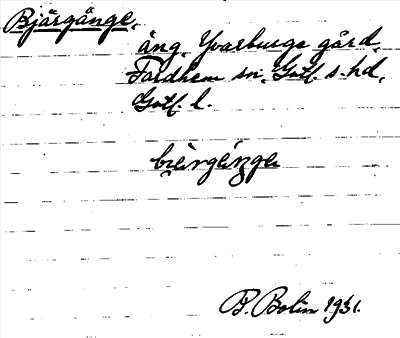 Bjärgänge,
äng, Yvarburge gård,
Fardhem sn, Gotl. s. hd,
Gotl. l.
B. Bolin 1931.